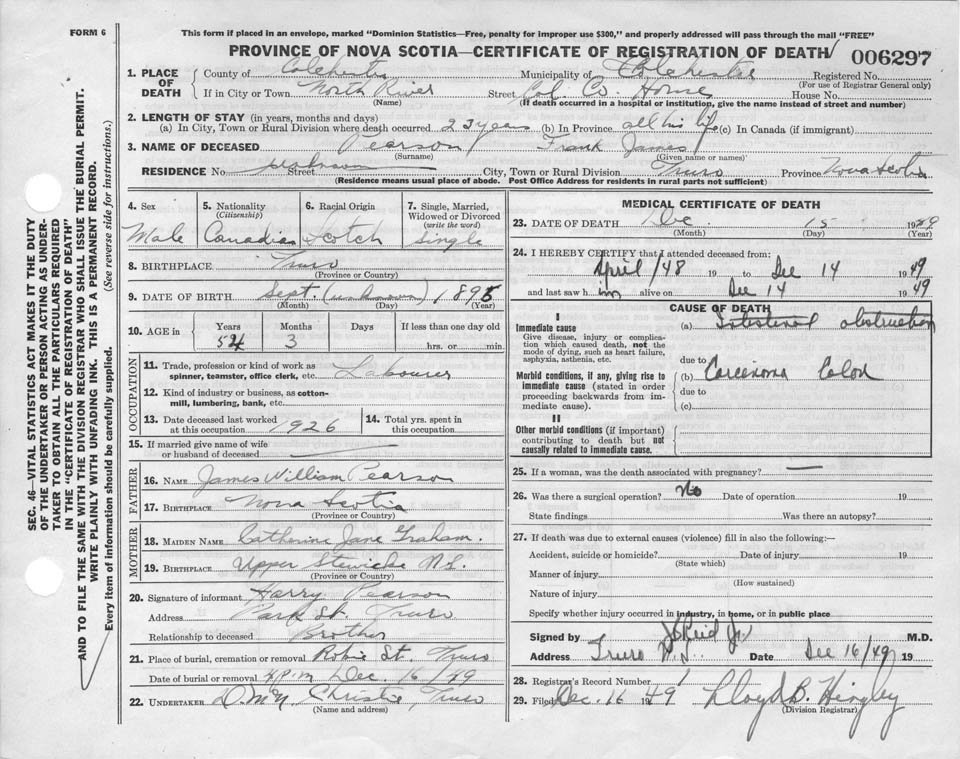 FORM 6
This form if placed in an envelope, marked "Dominion Statistics—Free, penalty for improper use $300," and properly addressed will pass through the mail "FREE"
PROVINCE OF NOVA SCOTIA—CERTIFICATE OF REGISTRATION OF DEATH 006297
1. PLACE OF DEATH County of Colchester Municipality of Colchester Registered No.
(For use of Registrar General only)
If in City or Town North River Street Col Co. Home House No.
(Name) (If death occurred in a hospital or institution, give the name instead of street and number)
2. LENGTH OF STAY (in years, months and days)
(a) In City, Town or Rural Division where death occurred 23 years (b) In Province all his life (c) In Canada (if immigrant)
3. NAME OF DECEASED Pearson Frank James
(Surname) (Given name or names)
RESIDENCE No Street City, Town or Rural Division Truro Province Nova Scotia
(Residence means usual place of abode. Post Office Address for residents in rural parts not sufficient)
4. Sex 5. Nationality (Citizenship) 6. Racial Origin 7. Single, Married, Widowed or Divorced (write the word)
Male Canadian Scotch Single
8. BIRTHPLACE Truro
(Province or Country)
9. DATE OF BIRTH Sept. (unknown) 1895
(Month) (Day) (Year)
10. AGE in Years Months Days If less than one day old
54 3 hrs. or min.
OCCUPATION
11. Trade, profession or kind of work as spinner, teamster, office clerk, etc. Labourer
12. Kind of industry or business, as cotton-mill, lumbering, bank, etc.
13. Date deceased last worked at this occupation 1926 14. Total yrs. spent in this occupation
15. If married give name of wife or husband of deceased
FATHER
16. NAME James William Pearson
17. BIRTHPLACE Nova Scotia
(Province or Country)
MOTHER
18. MAIDEN NAME Catherine Jane Graham.
19. BIRTHPLACE Upper Stewicke N.S.
(Province or Country)
20. Signature of informant Harry Pearson
Address Park St. Truro
Relationship to deceased Brother
21. Place of burial, cremation or removal Robie St. Truro
Date of burial or removal 4 P.M Dec. 16/49
22. UNDERTAKER Christie, Truro
(Name and address)
MEDICAL CERTIFICATE OF DEATH
23. DATE OF DEATH Dec 15 1949
(Month) (Day) (Year)
24. I HEREBY CERTIFY that I attended deceased from:
April/48 19 to Dec 14 1949
and last saw him alive on Dec 14 1949
CAUSE OF DEATH
I
Immediate cause (a) Intestinal obstruction
Give disease, injury or complication which caused death, not the mode of dying, such as heart failure, asphyxia, asthenia, etc.
due to
Morbid conditions, if any, giving rise to immediate cause (stated in order proceeding backwards from immediate cause). (b) Carcenoma Colon
due to
(c)
II
Other morbid conditions (if important) contributing to death but not causally related to immediate cause.
25. If a woman, was the death associated with pregnancy?
26. Was there a surgical operation? No Date of operation 19
State findings Was there an autopsy?
27. If death was due to external causes (violence) fill in also the following:—
Accident, suicide or homicide? Date of injury 19
(State which)
Manner of injury
(How sustained)
Nature of injury
Specify whether injury occurred in industry, in home, or in public place
Signed by Reid Jr. M.D.
Address Truro N.S. Date Dec 16/49 19
28. Registrar's Record Number 1
29. Filed Dec. 16 1949 Lloyd B. Hingley
(Division Registrar)
SEC. 46—VITAL STATISTICS ACT MAKES IT THE DUTY
OF THE UNDERTAKER OR PERSON ACTING AS UNDER-
TAKER TO OBTAIN ALL THE PARTICULARS REQUIRED
IN THE "CERTIFICATE OF REGISTRATION OF DEATH"
AND TO FILE THE SAME WITH THE DIVISION REGISTRAR WHO SHALL ISSUE THE BURIAL PERMIT.
WRITE PLAINLY WITH UNFADING INK. THIS IS A PERMANENT RECORD.
Every item of information should be carefully supplied. (See reverse side for instructions.)